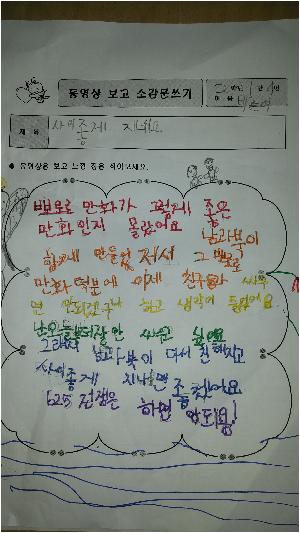 동영상 보고 소감문쓰기
2학년 반 번
이름
제목 사이좋게 지내요
● 동영상을 보고 느낀 점을 적어보세요.
뽀로로 만화가 그렇게 좋은
만화인지 몰랐어요 남과북이
함께 만들었 져서 그
만화 덕분에 이제 친구와 싸우
면 안되겠구나 하고 생각이 들었어요
안 싸우고 싶어요
그래서 남과북이 다시 친해지고
사이좋게 지내면 좋겠어요
625 전쟁은 하면 안되요!